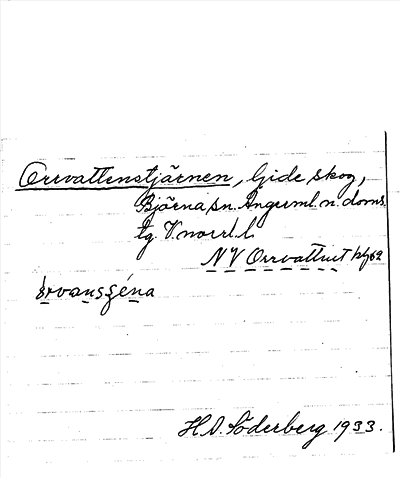 Orrvattenstjärnen, Gide skog,
Björna sn. Ångerml. n. doms.
tg. V.norrl. l.
NV Orrvattnet bl 62
H. O. Söderberg 1933.